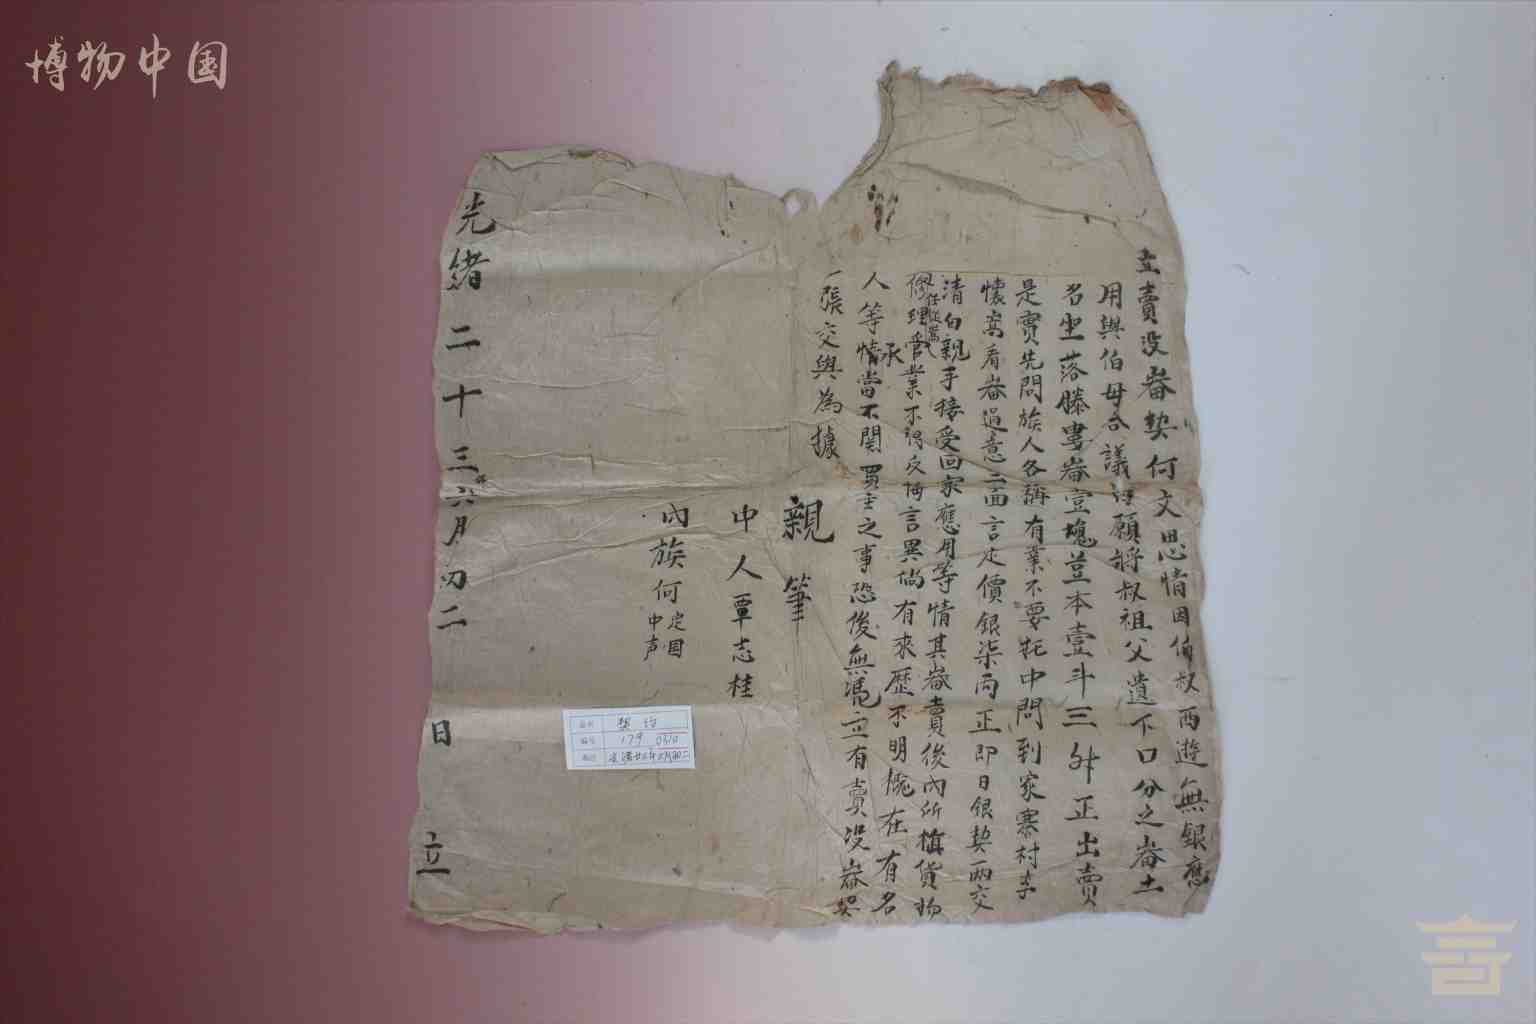 博物中国
立賣没畬契何文思情因伯叔西遊無銀應
用與伯母合議 願將叔祖父遺下口分之畬土
名坐落滕婁畬壹塊並本壹斗三舛正出賣
是實先問族人各講有業不要托中問到家寨村李
懷嵩看畬過意三面言定價銀柒両正即日銀契兩交
清白親手接受回家應用等情其畬賣後內所植貨物
任從嵩
修理管業不得反悔言異倘有來歷不明概在有名
人等情承當不関買主之事恐後無馮立有賣没畬契
一張交與為據
親筆
中人覃志桂
內族何定国
中声
光緒二十三 六月初二日立
契约
179 0310